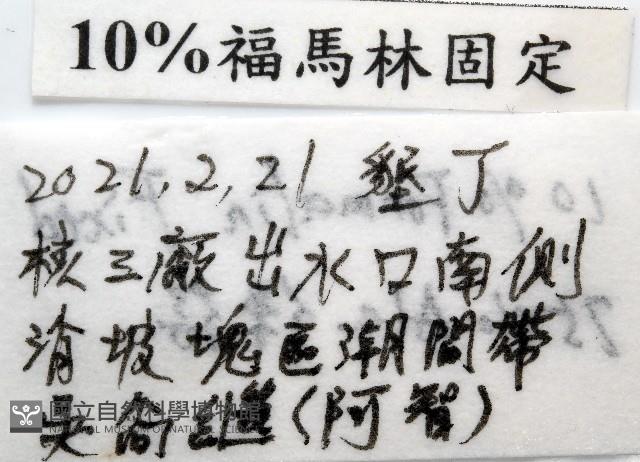 10%福馬林固定
2021,2,21 墾丁
核三廠出水口南側
消坡塊區潮間帶
(阿智)
國立自然科學博物館
NATIONAL MUSEUM OF NATURAL SCIENCE